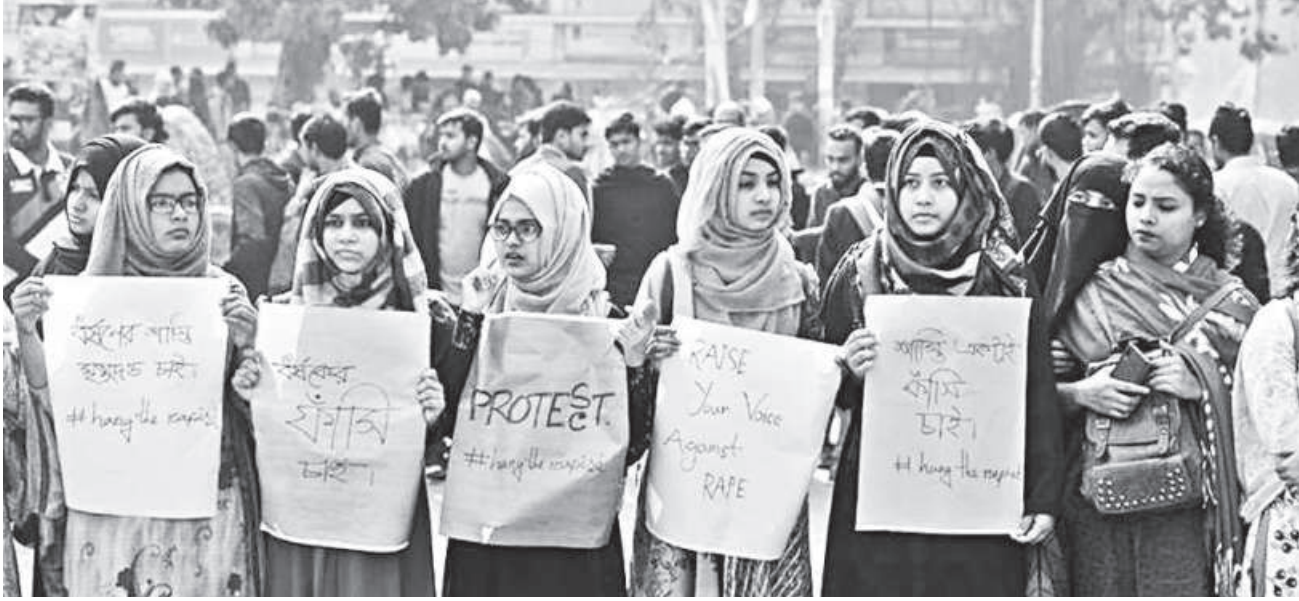 ধর্ষনের শাস্তি
মৃত্যুদন্ড চাই।
# hang the rapist
ধর্ষকের
ফাঁসি
চাই।
PROTECST.
# hang the rapist
RAISE
Your Voice
Against
RAPE
শাস্তি একটাই
ফাঁসি
চাই।
# hang the rapist